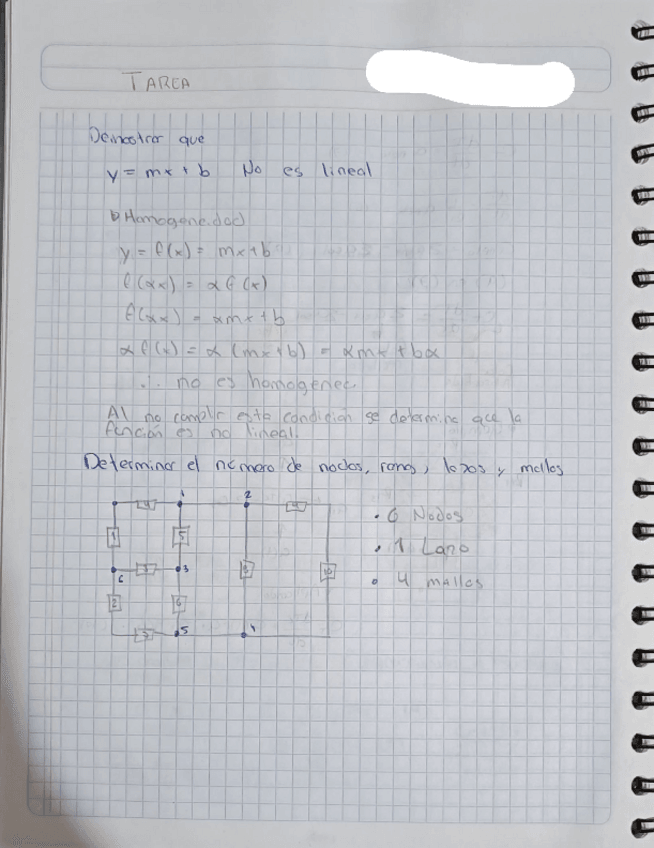 TAREA
Demostrar que
y = mx + b No es lineal
Homogeneidad
y = f(x) = mx+b
f(αx) = α f(x)
f(αx) = αmx+b
α f(x) = α (mx+b) = αmx + bα
∴ no es homogenea
Al no cumplir esta condición se determina que la
función es no lineal.
Determinar el número de nodos, ramas, lazos y mallas
4 1 2
1 5 • 6 Nodos
• 1 Lazo
6 3 3 8 10
2 6 • 4 mallas
7 5